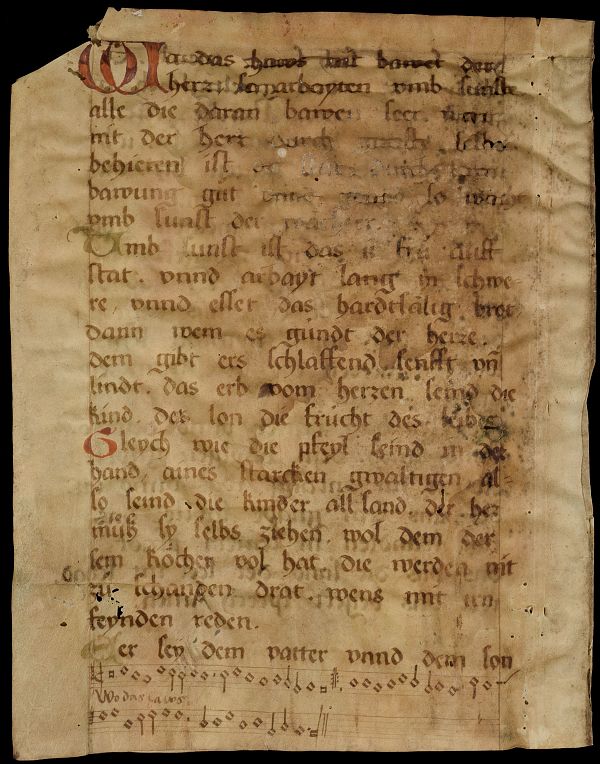 Wa das haws nit bawet der
herr so arbayten vmb sunst
alle die daran bawen seer
nit der herr durch selbs
behieten ist
bawung gut so wacht
vmb sunst der wachter
Umb sunst ist das ir fru auff
stat. vnnd arbayt lang in schwe
re, vnnd esset das hardtsälig brot
dann wem es gündt der herre.
dem gibt ers schlaffend, senfft vn̄
lindt. das erb vom herren seind die
kind. der lon die frücht des leibes
Gleych wie die pfeyl seind in der
hand aines starcken gwaltigen al-
so seind die kinder all sand. der her
müß sy selbs ziehen. wol dem der
sein köcher vol hat. die werden nit
zu schanden drat. wens mit irn
feynden reden.
Eer sey dem vatter vnnd dem son
Wo das haws